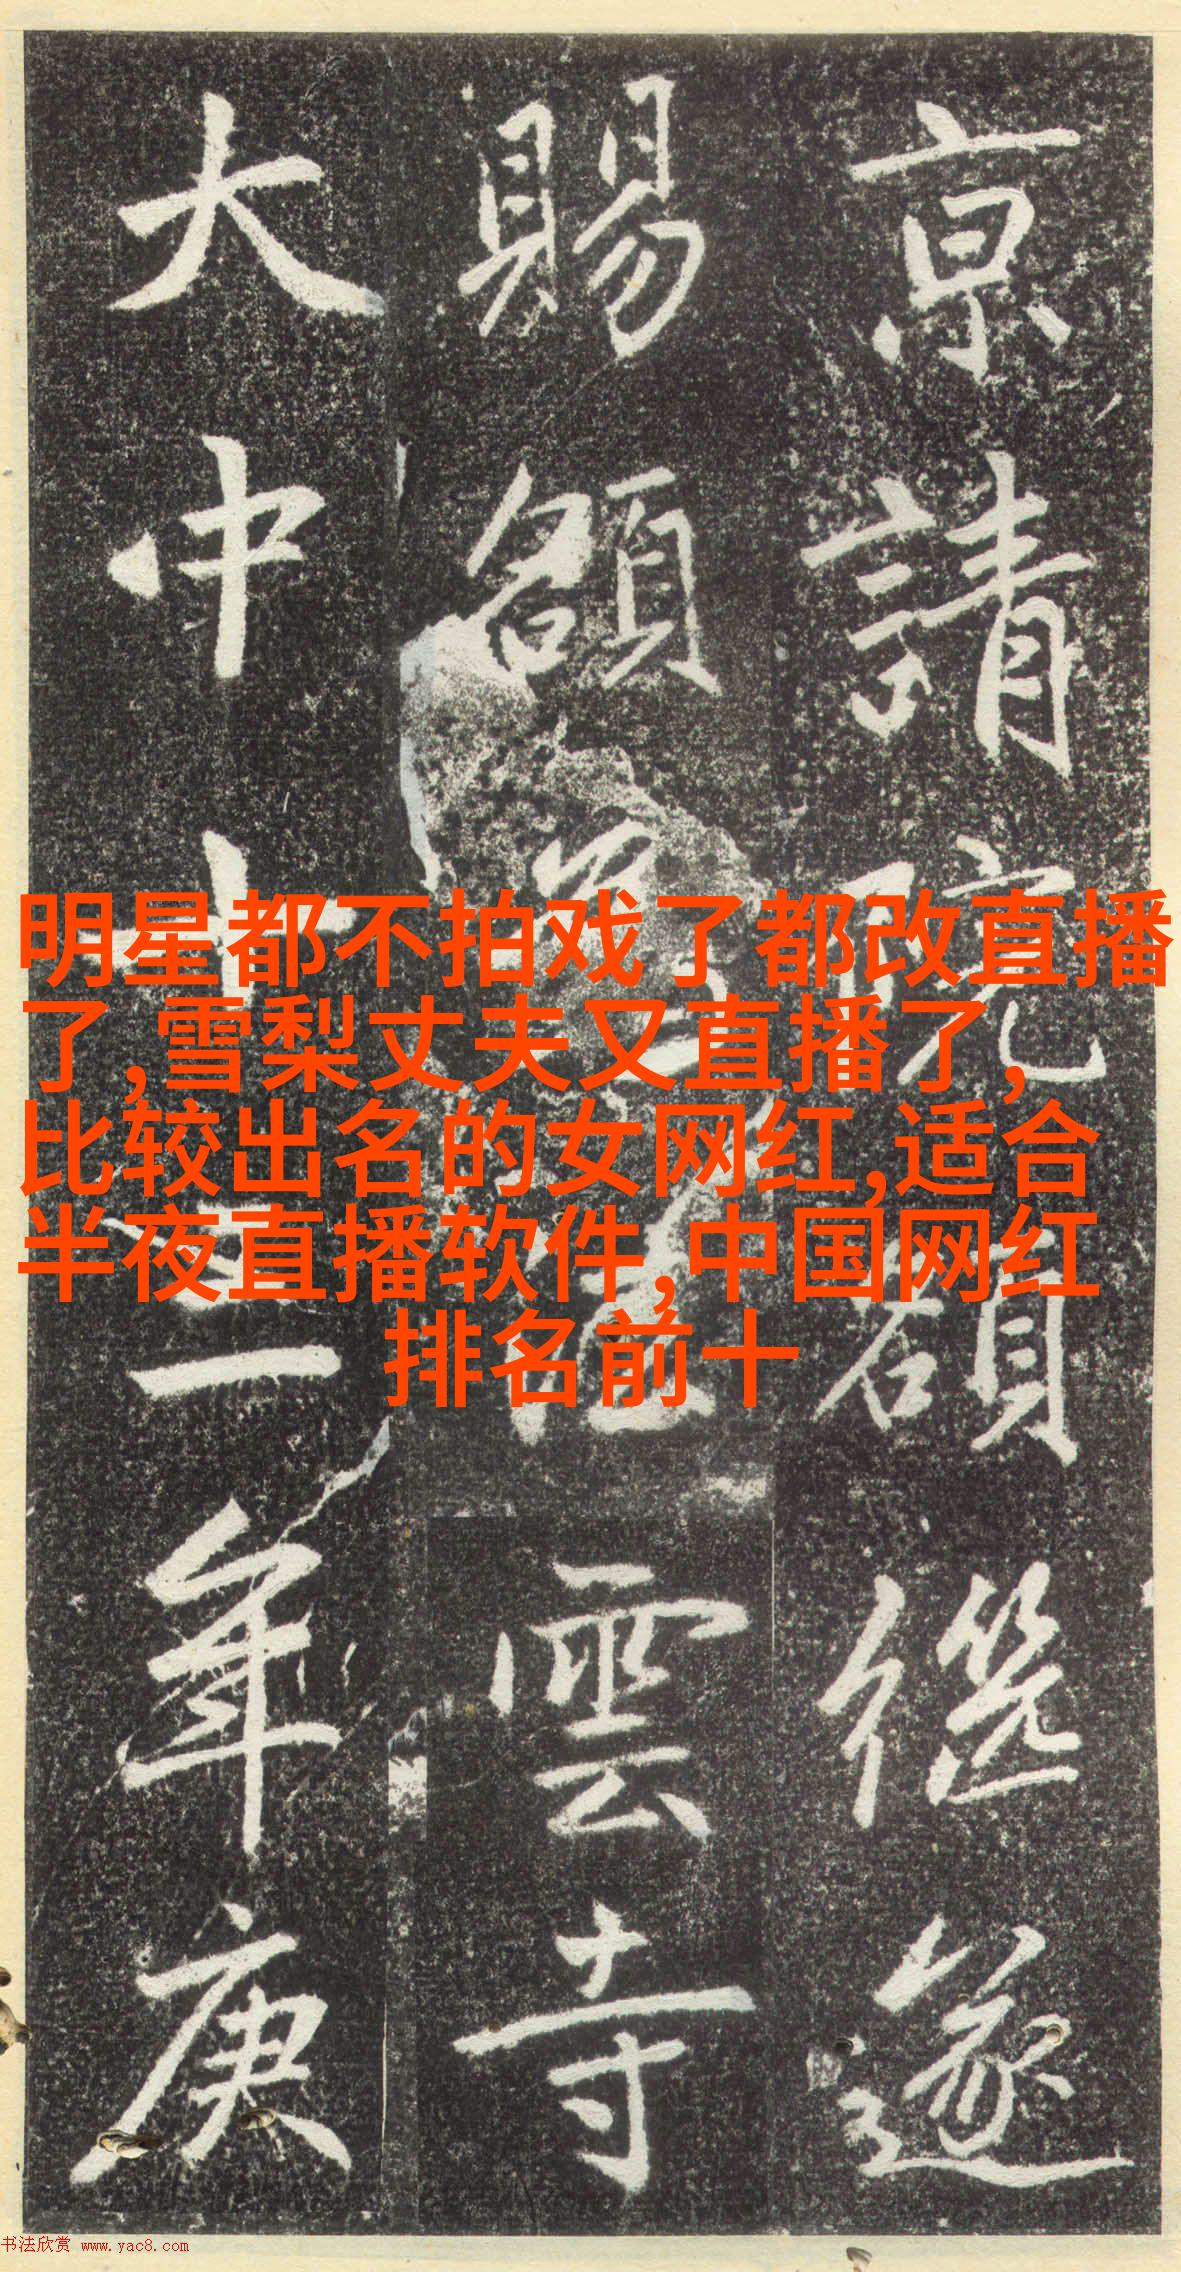 京請院額継遂
賜額雲寺
大中十三年庚
明星都不拍戏了都改直播
了,雪梨丈夫又直播了,
比较出名的女网红,适合
半夜直播软件,中国网红
排名前十
书法欣赏 www.yac8.com